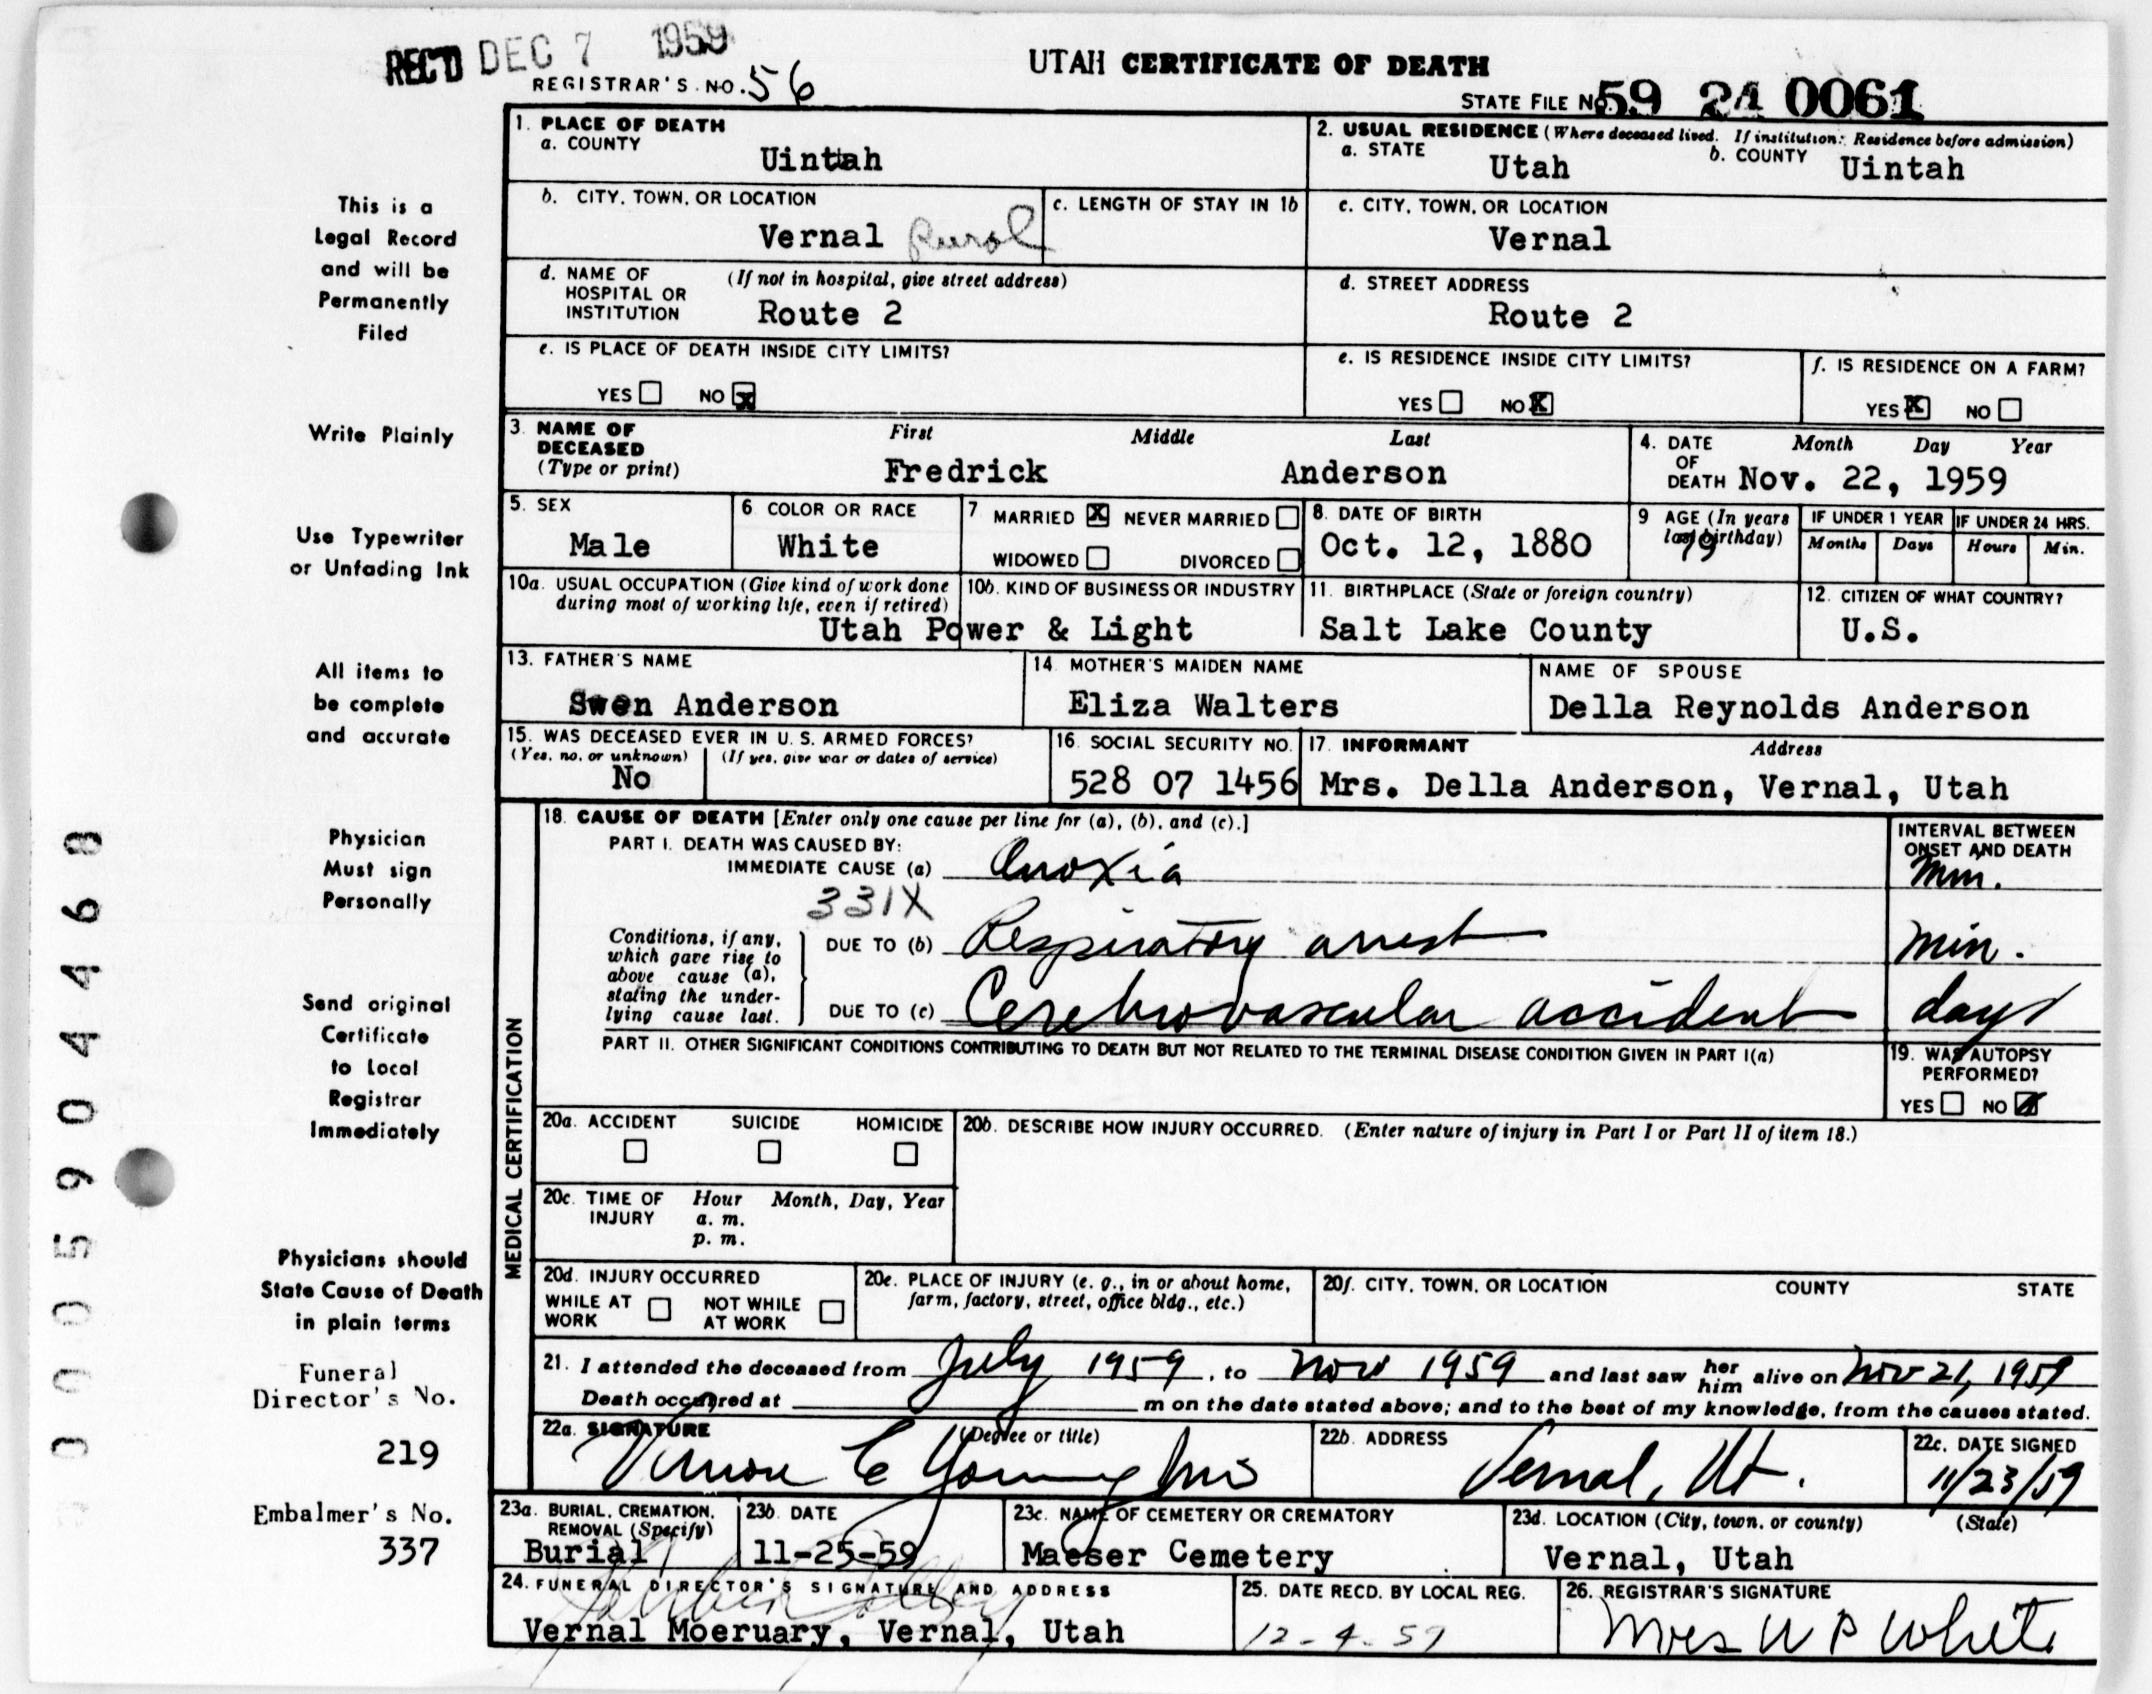 REC'D DEC 7 1959
REGISTRAR'S NO. 56
UTAH CERTIFICATE OF DEATH
STATE FILE No. 59 24 0061
This is a
Legal Record
and will be
Permanently
Filed
Write Plainly
Use Typewriter
or Unfading Ink
All items to
be complete
and accurate
Physician
Must sign
Personally
Send original
Certificate
to Local
Registrar
Immediately
Physicians should
State Cause of Death
in plain terms
Funeral
Director's No.
219
Embalmer's No.
337
0005904468
1. PLACE OF DEATH
a. COUNTY
Uintah
2. USUAL RESIDENCE (Where deceased lived. If institution: Residence before admission)
a. STATE Utah b. COUNTY Uintah
b. CITY, TOWN, OR LOCATION
Vernal Rural
c. LENGTH OF STAY IN 1b
c. CITY, TOWN, OR LOCATION
Vernal
d. NAME OF HOSPITAL OR INSTITUTION (If not in hospital, give street address)
Route 2
d. STREET ADDRESS
Route 2
e. IS PLACE OF DEATH INSIDE CITY LIMITS?
YES NO X
e. IS RESIDENCE INSIDE CITY LIMITS?
YES NO X
f. IS RESIDENCE ON A FARM?
YES X NO
3. NAME OF DECEASED (Type or print)
First Middle Last
Fredrick Anderson
4. DATE OF DEATH Month Day Year
Nov. 22, 1959
5. SEX
Male
6 COLOR OR RACE
White
7 MARRIED X NEVER MARRIED
WIDOWED DIVORCED
8. DATE OF BIRTH
Oct. 12, 1880
9 AGE (In years last birthday)
79
IF UNDER 1 YEAR IF UNDER 24 HRS.
Months Days Hours Min.
10a. USUAL OCCUPATION (Give kind of work done during most of working life, even if retired)
10b. KIND OF BUSINESS OR INDUSTRY
Utah Power & Light
11. BIRTHPLACE (State or foreign country)
Salt Lake County
12. CITIZEN OF WHAT COUNTRY?
U.S.
13. FATHER'S NAME
Swen Anderson
14. MOTHER'S MAIDEN NAME
Eliza Walters
NAME OF SPOUSE
Della Reynolds Anderson
15. WAS DECEASED EVER IN U. S. ARMED FORCES?
(Yes, no, or unknown) (If yes, give war or dates of service)
No
16. SOCIAL SECURITY NO.
528 07 1456
17. INFORMANT Address
Mrs. Della Anderson, Vernal, Utah
MEDICAL CERTIFICATION
18. CAUSE OF DEATH [Enter only one cause per line for (a), (b), and (c).]
PART I. DEATH WAS CAUSED BY:
IMMEDIATE CAUSE (a) Anoxia
331X
INTERVAL BETWEEN ONSET AND DEATH
Min.
Conditions, if any, which gave rise to above cause (a), stating the underlying cause last.
DUE TO (b) Respiratory arrest min.
DUE TO (c) Cerebrovascular accident days
PART II. OTHER SIGNIFICANT CONDITIONS CONTRIBUTING TO DEATH BUT NOT RELATED TO THE TERMINAL DISEASE CONDITION GIVEN IN PART I(a)
19. WAS AUTOPSY PERFORMED?
YES NO X
20a. ACCIDENT SUICIDE HOMICIDE
20b. DESCRIBE HOW INJURY OCCURRED. (Enter nature of injury in Part I or Part II of item 18.)
20c. TIME OF INJURY Hour Month, Day, Year
a. m.
p. m.
20d. INJURY OCCURRED
WHILE AT WORK NOT WHILE AT WORK
20e. PLACE OF INJURY (e. g., in or about home, farm, factory, street, office bldg., etc.)
20f. CITY, TOWN, OR LOCATION COUNTY STATE
21. I attended the deceased from July 1959, to Nov 1959 and last saw her him alive on Nov 21, 1959
Death occurred at m on the date stated above; and to the best of my knowledge, from the causes stated.
22a. SIGNATURE (Degree or title)
Vernon E Young MD
22b. ADDRESS
Vernal, Ut.
22c. DATE SIGNED
11/23/59
23a. BURIAL, CREMATION, REMOVAL (Specify)
Burial
23b. DATE
11-25-59
23c. NAME OF CEMETERY OR CREMATORY
Maeser Cemetery
23d. LOCATION (City, town, or county) (State)
Vernal, Utah
24. FUNERAL DIRECTOR'S SIGNATURE AND ADDRESS
Vernal Moeruary, Vernal, Utah
25. DATE RECD. BY LOCAL REG.
12-4-59
26. REGISTRAR'S SIGNATURE
Mrs W P White